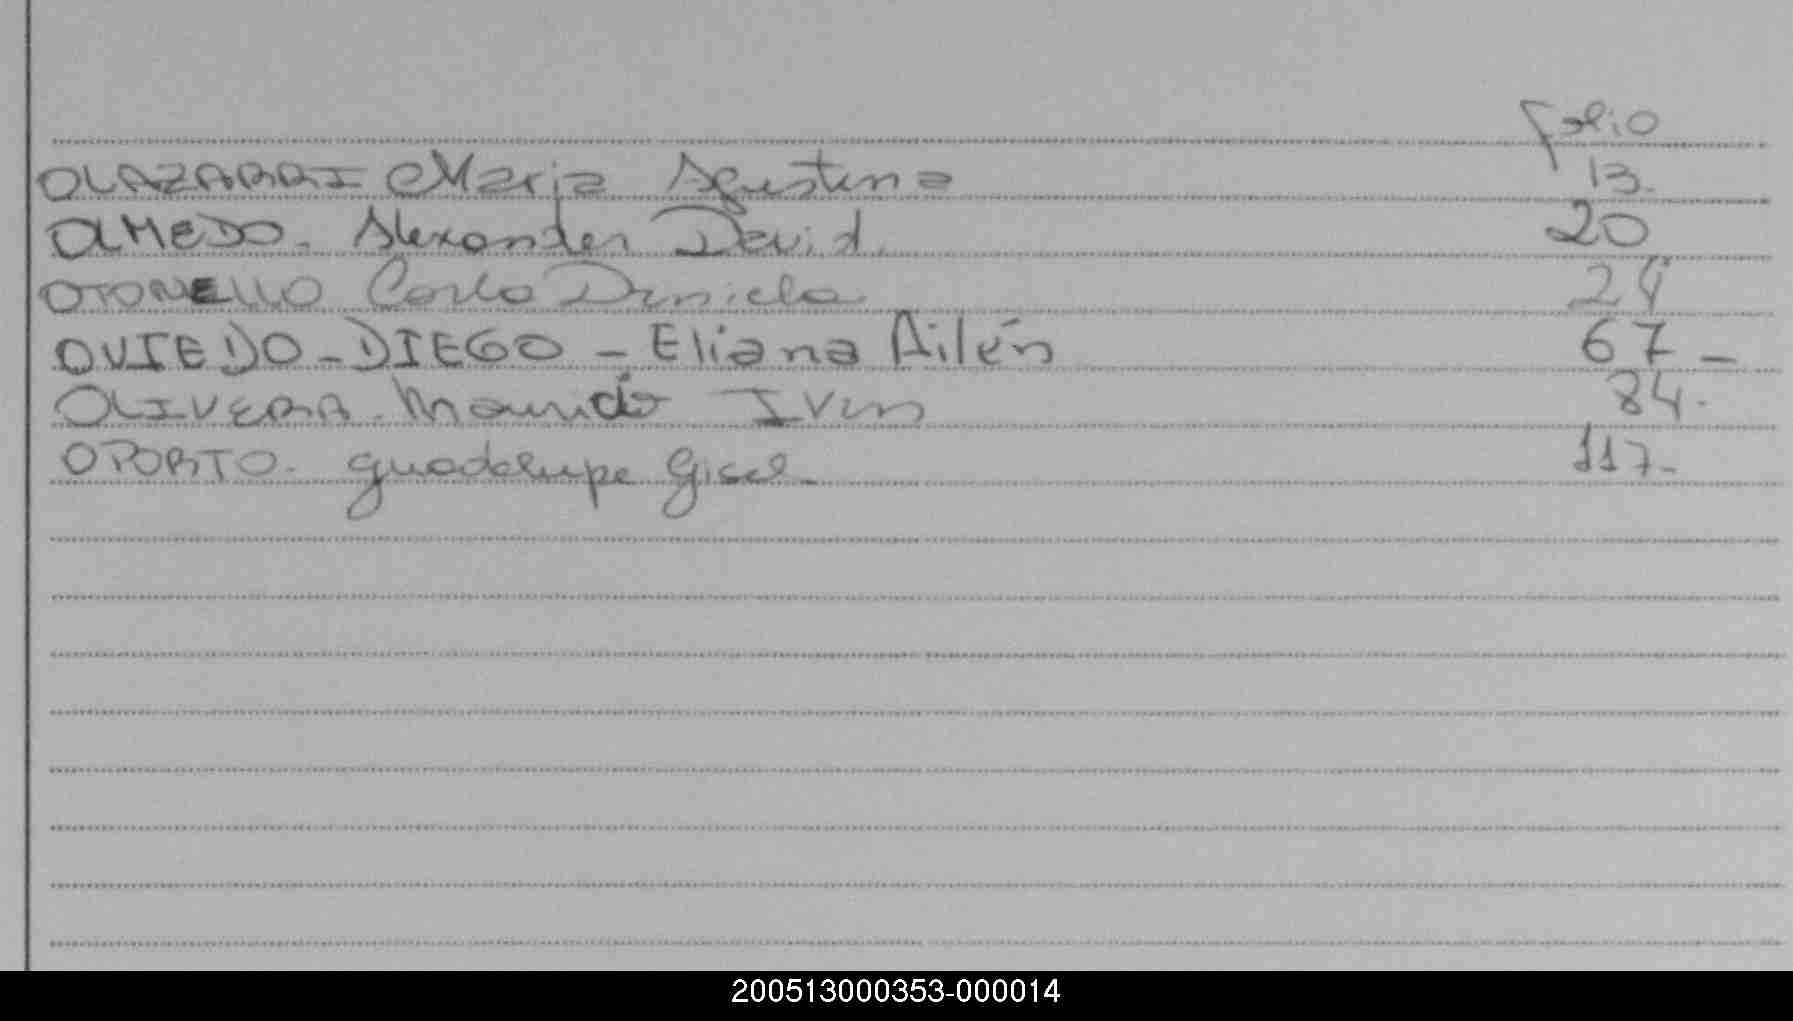 folio
OLAZARRI Maria Agustina 13.
OLMEDO. Alexander David. 20
OTONELLO Carlo Daniela 24
OVIEDO-DIEGO - Eliana Ailén 67-
OLIVERA. Mauricio Ivan 84.
OPORTO. guadalupe Gisel. 117-
200513000353-000014